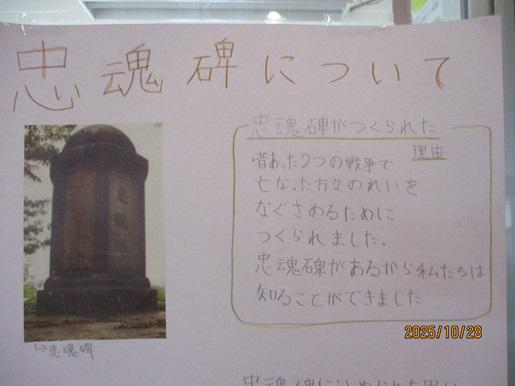 忠魂碑について
忠魂碑がつくられた
理由
・昔あった2つの戦争で
亡なった方々のれいを
なぐさめるために
つくられました.
忠魂碑があるから私たちは
知ることができました
↳忠魂碑
2025/10/28